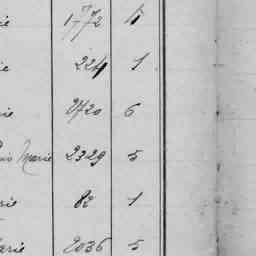 rie 1772 4
rie 224 1
rie 2720 6
Marie 2329 5
rie 82 1
Marie 2036 5